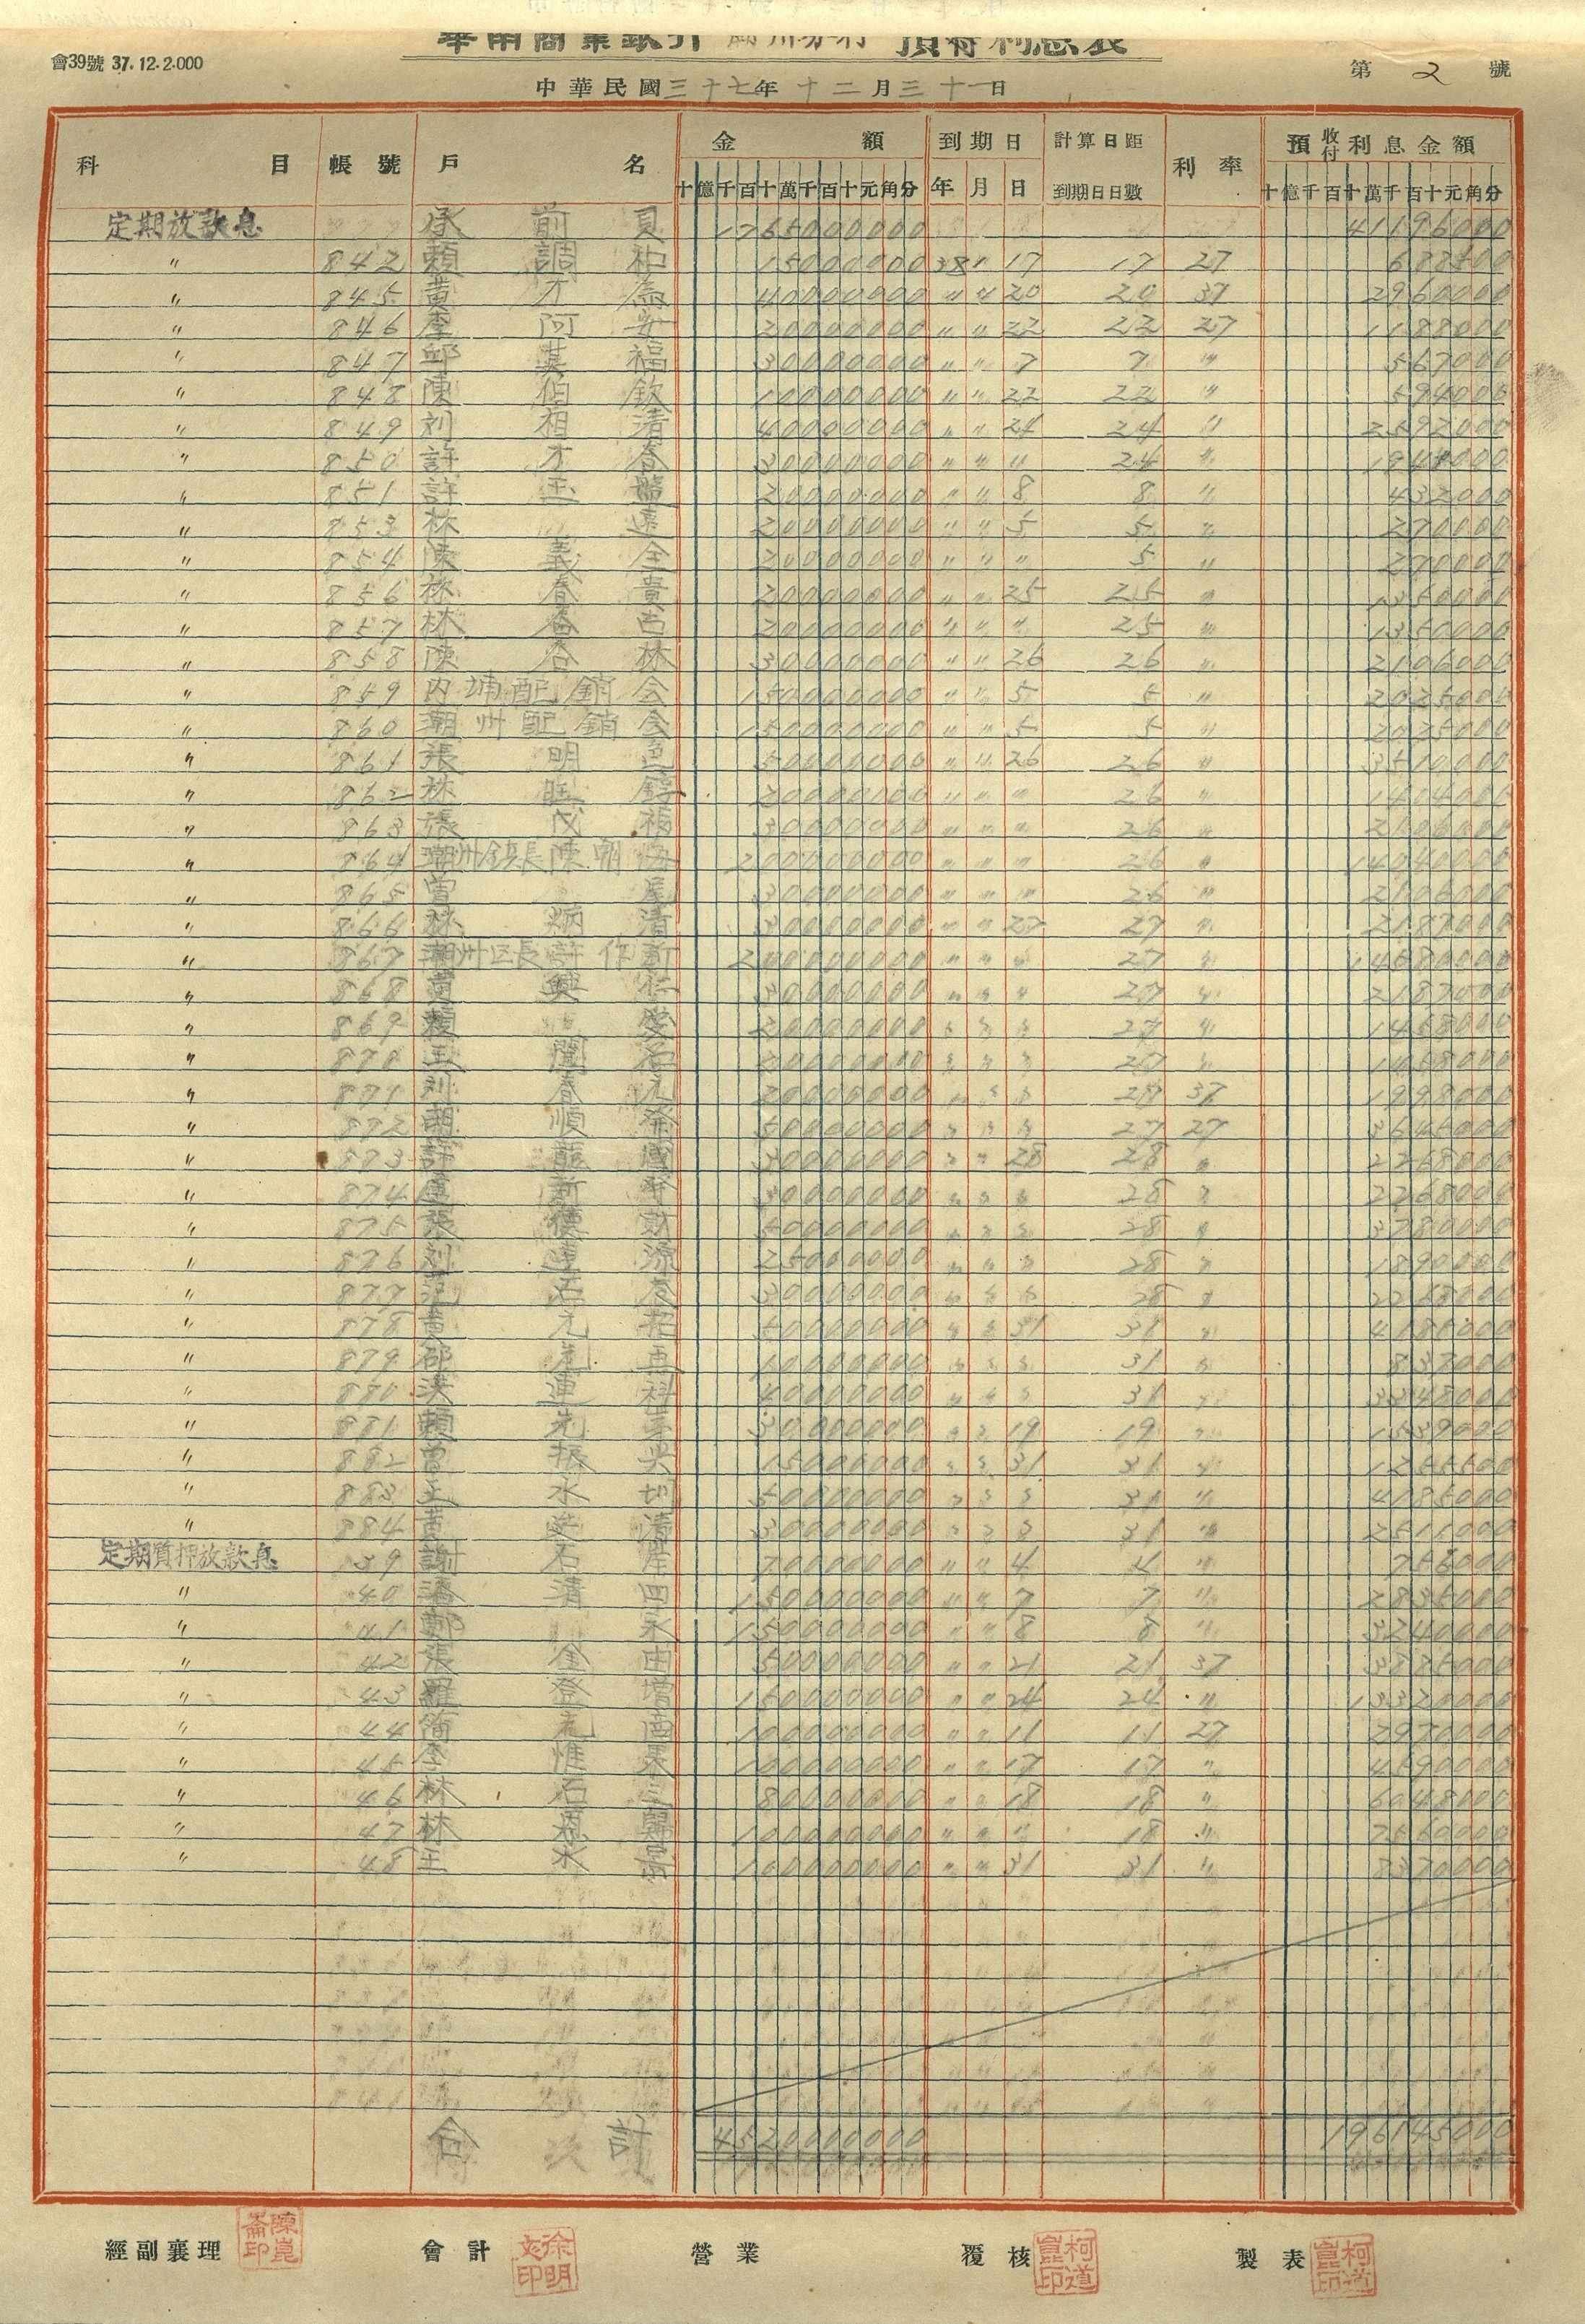 華南商業銀行 潮州分行 預付利息表
會39號 37.12.2.000
第 2 號
中華民國三十七年十二月三十一日
科目 帳號 戶名 金額 到期日 計算日距到期日日數 利率 預收付利息金額
十億千百十萬千百十元角分 年 月 日 十億千百十萬千百十元角分
定期放款息 承前頁 1765000000 41196000
〃 842 賴調 15000000 38 1 17 17 27 688500
〃 845 黃才 40000000 〃 〃 20 20 37 2960000
〃 846 李阿安 20000000 〃 〃 22 22 27 1188000
〃 847 邱其福 30000000 〃 〃 7 7 〃 567000
〃 848 陳伯欽 10000000 〃 〃 22 22 〃 594000
〃 849 刘相清 40000000 〃 〃 24 24 〃 2592000
〃 850 許才春 30000000 〃 〃 〃 24 〃 1944000
〃 851 許玉 20000000 〃 〃 8 8 〃 432000
〃 853 林遠 20000000 〃 〃 5 5 〃 270000
〃 854 陳義全 20000000 〃 〃 〃 5 〃 270000
〃 856 林春貴 20000000 〃 〃 25 25 〃 1350000
〃 857 林番古 20000000 〃 〃 〃 25 〃 1350000
〃 858 陳杏林 30000000 〃 〃 26 26 〃 2106000
〃 859 內埔配銷会 150000000 〃 〃 5 5 〃 2025000
〃 860 潮州配銷会 150000000 〃 〃 5 5 〃 2025000
〃 861 張明色 50000000 〃 〃 26 26 〃 3510000
〃 862 林旺錞 20000000 〃 〃 〃 26 〃 1404000
〃 863 張茂福 30000000 〃 〃 〃 26 〃 2106000
〃 864 潮州鎮長陳朝海 200000000 〃 〃 〃 26 〃 14040000
〃 865 曾尾 30000000 〃 〃 〃 26 〃 2106000
〃 866 林炳清 30000000 〃 〃 27 27 〃 2187000
〃 867 潮州区長許作新 200000000 〃 〃 〃 27 〃 14580000
〃 868 黃興仁 30000000 〃 〃 〃 27 〃 2187000
〃 869 賴愛 20000000 〃 〃 〃 27 〃 1458000
〃 870 王闊名 20000000 〃 〃 〃 27 〃 1458000
〃 871 刘春元 20000000 〃 〃 〃 27 37 1998000
〃 872 胡順發 50000000 〃 〃 〃 27 27 3645000
〃 873 許龍國 30000000 〃 〃 28 28 〃 2268000
〃 874 盧新 30000000 〃 〃 〃 28 〃 2268000
〃 875 張德財 50000000 〃 〃 〃 28 〃 3780000
〃 876 刘連源 25000000 〃 〃 〃 28 〃 1890000
〃 877 30000000 〃 〃 〃 28 〃 2268000
〃 878 黃元招 50000000 〃 〃 31 31 〃 4185000
〃 879 邵先再 10000000 〃 〃 〃 31 〃 837000
〃 880 洪連科 40000000 〃 〃 〃 31 〃 3348000
〃 881 賴先 30000000 〃 〃 19 19 〃 1539000
〃 882 曾振央 15000000 〃 〃 31 31 〃 1255500
〃 883 王水圳 50000000 〃 〃 〃 31 〃 4185000
〃 884 黃清 30000000 〃 〃 〃 31 〃 2511000
定期質押放款息 39 謝石岸 70000000 〃 〃 4 4 〃 756000
〃 40 潘清四 150000000 〃 〃 7 7 〃 2835000
〃 41 鄭永 150000000 〃 〃 8 8 〃 3240000
〃 42 張金田 50000000 〃 〃 21 21 37 3885000
〃 43 羅登增 150000000 〃 〃 24 24 〃 13320000
〃 44 100000000 〃 〃 11 11 27 2970000
〃 45 惟 100000000 〃 〃 17 17 〃 4590000
〃 46 林石三 80000000 〃 〃 18 18 〃 6048000
〃 47 林歸 100000000 〃 〃 〃 18 〃 7560000
〃 48 王水 100000000 〃 〃 31 31 〃 8370000
合計 4520000000 196145000
經副襄理 會計 營業 覆核 製表
陳崑崙印 徐明印 柯道崑印 柯道崑印